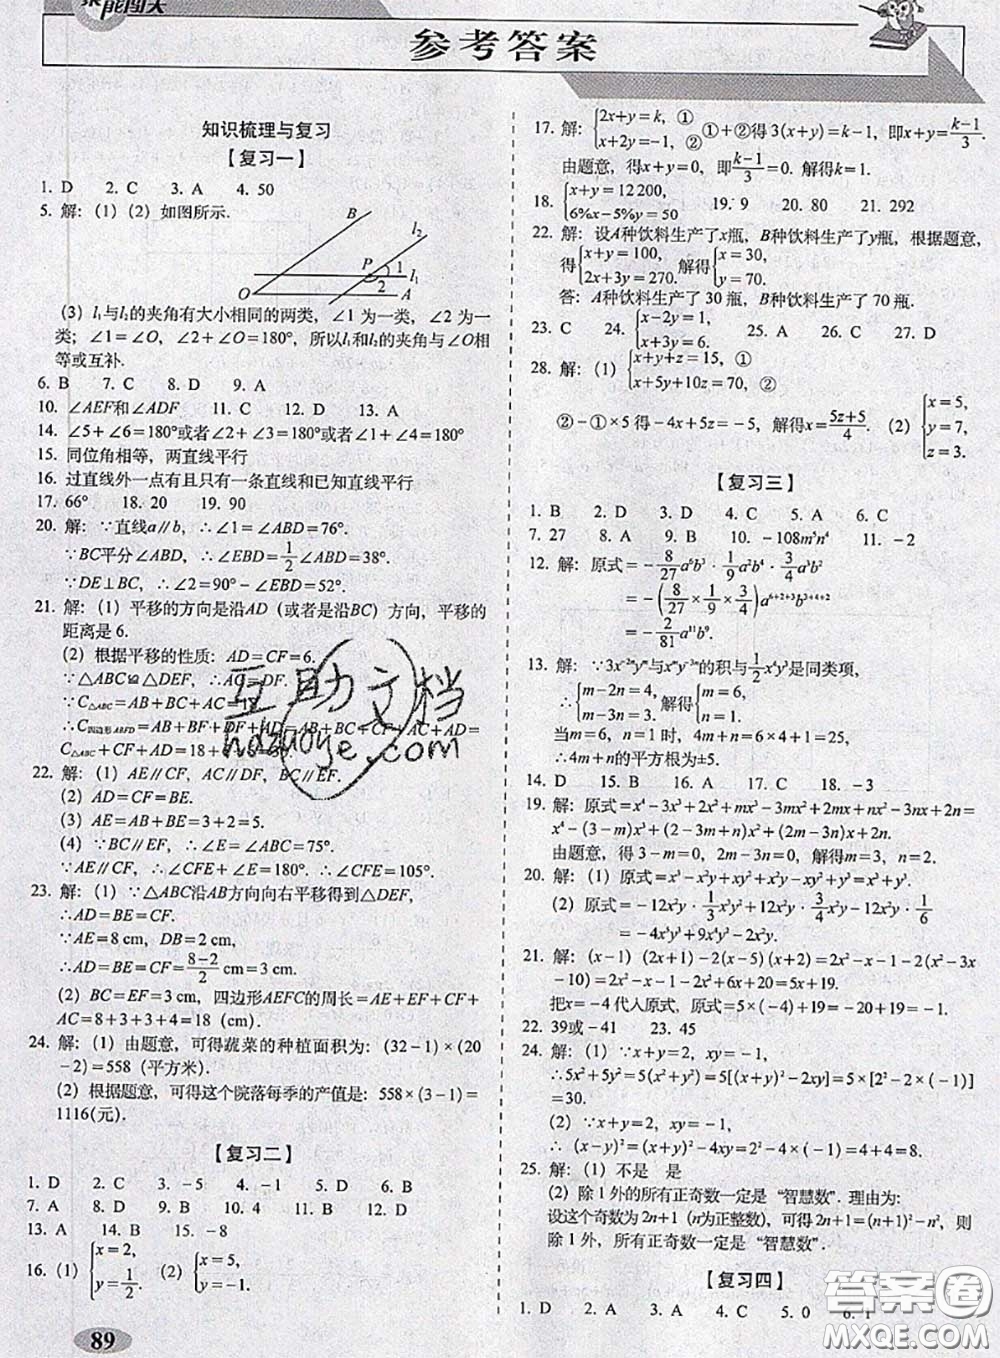 聚能闯关
参考答案
知识梳理与复习
【复习一】
1. D 2. C 3. A 4. 50
5. 解：(1) (2) 如图所示.
B
l₂
P
1
l₁
2
O
A
(3) l₁与l₂的夹角有大小相同的两类，∠1 为一类，∠2 为一
类；∠1＝∠O，∠2＋∠O＝180°，所以l₁和l₂的夹角与∠O相
等或互补.
6. B 7. C 8. D 9. A
10. ∠AEF和∠ADF 11. C 12. D 13. A
14. ∠5＋∠6＝180°或者∠2＋∠3＝180°或者∠1＋∠4＝180°
15. 同位角相等，两直线平行
16. 过直线外一点有且只有一条直线和已知直线平行
17. 66° 18. 20 19. 90
20. 解：∵直线a∥b，∴∠1＝∠ABD＝76°.
∵BC平分∠ABD，∴∠EBD＝1/2∠ABD＝38°.
∵DE⊥BC，∴∠2＝90°－∠EBD＝52°.
21. 解：(1) 平移的方向是沿AD（或者是沿BC）方向，平移的
距离是 6.
(2) 根据平移的性质：AD＝CF＝6.
∵△ABC≌△DEF，∴AC＝DF.
∵C△ABC＝AB＋BC＋AC＝18.
∴C四边形ABFD＝AB＋BF＋DF＋AD＝AB＋BC＋CF＋AC＋AD＝
C△ABC＋CF＋AD＝18＋6＋6＝30.
22. 解：(1) AE∥CF，AC∥DF，BC∥EF.
(2) AD＝CF＝BE.
(3) AB＝AE－BE＝3＋2＝5.
(4) ∵BC∥EF，∴∠E＝∠ABC＝75°.
∵AE∥CF，∴∠CFE＋∠E＝180°. ∴∠CFE＝105°.
23. 解：(1) ∵△ABC沿AB方向向右平移得到△DEF，
∴AD＝BE＝CF.
∵AE＝8 cm，DB＝2 cm，
∴AD＝BE＝CF＝(8－2)/2 cm＝3 cm.
(2) BC＝EF＝3 cm，四边形AEFC的周长＝AE＋EF＋CF＋
AC＝8＋3＋3＋4＝18（cm）.
24. 解：(1) 由题意，可得蔬菜的种植面积为：(32－1)×(20
－2)＝558（平方米）.
(2) 根据题意，可得这个院落每季的产值是：558×(3－1)＝
1116(元).
【复习二】
1. D 2. C 3. －5 4. －1 5. D 6. B
7. A 8. D 9. B 10. 4 11. B 12. D
13. A 14. B 15. －8
16. (1) {x＝2， y＝1/2. (2) {x＝5， y＝－1.
89
17. 解：{2x＋y＝k，① x＋2y＝－1，② ①＋②得 3(x＋y)＝k－1，即x＋y＝(k－1)/3.
由题意，得x＋y＝0，即(k－1)/3＝0. 解得k＝1.
18. {x＋y＝12 200， 6%x－5%y＝50 19. 9 20. 80 21. 292
22. 解：设A种饮料生产了x瓶，B种饮料生产了y瓶，根据题意，
得{x＋y＝100， 2x＋3y＝270. 解得{x＝30， y＝70.
答：A种饮料生产了 30 瓶，B种饮料生产了 70 瓶.
23. C 24. {x－2y＝1， x＋3y＝6. 25. A 26. C 27. D
28. 解：(1) {x＋y＋z＝15，① x＋5y＋10z＝70，②
②－①×5 得－4x＋5z＝－5，解得x＝(5z＋5)/4. (2) {x＝5， y＝7， z＝3.
【复习三】
1. B 2. D 3. D 4. C 5. A 6. C
7. 27 8. A 9. B 10. －108m⁵n⁴ 11. －2
12. 解：原式＝－8/27 a⁶b³·1/9 a²b⁴·3/4 a³b²
＝－(8/27×1/9×3/4)a⁶⁺²⁺³b³⁺⁴⁺²
＝－2/81 a¹¹b⁹.
13. 解：∵3x⁻²ᵐyᵐ与xⁿy⁻³ⁿ的积与1/2x⁴y³是同类项，
∴{m－2n＝4， m－3n＝3. 解得{m＝6， n＝1.
当m＝6，n＝1 时，4m＋n＝4×6＋1＝25，
∴4m＋n的平方根为±5.
14. D 15. B 16. A 17. C 18. －3
19. 解：原式＝x⁴－3x³＋2x²＋mx³－3mx²＋2mx＋nx²－3nx＋2n＝
x⁴－(3－m)x³＋(2－3m＋n)x²＋(2m－3n)x＋2n.
由题意，得 3－m＝0，2－3m＋n＝0，解得m＝3，n＝2.
20. 解：(1) 原式＝x³－x²y＋xy²＋x²y－xy²＋y³＝x³＋y³.
(2) 原式＝－12x²y·1/3x²y²＋12x²y·3/4x²y－12x²y·1/6
＝－4x⁴y³＋9x⁴y²－2x²y.
21. 解：(x－1) (2x＋1)－2(x－5)(x＋2)＝2x²－x－1－2(x²－3x
－10)＝2x²－x－1－2x²＋6x＋20＝5x＋19.
把x＝－4代入原式，原式＝5×(－4)＋19＝－20＋19＝－1.
22. 39或－41 23. 45
24. 解：(1) ∵x＋y＝2，xy＝－1，
∴5x²＋5y²＝5(x²＋y²)＝5[(x＋y)²－2xy]＝5×[2²－2×(－1)]
＝30.
(2) ∵x＋y＝2，xy＝－1，
∴(x－y)²＝(x＋y)²－4xy＝2²－4×(－1)＝4＋4＝8.
25. 解：(1) 不是 是
(2) 除 1 外的所有正奇数一定是“智慧数”. 理由为：
设这个奇数为 2n＋1（n为正整数），可得 2n＋1＝(n＋1)²－n²，则
除 1 外，所有正奇数一定是“智慧数”.
【复习四】
1. D 2. A 3. A 4. C 5. 0 6. 1
互助文档
hdzuoye.com
答案圈
MXQE.COM